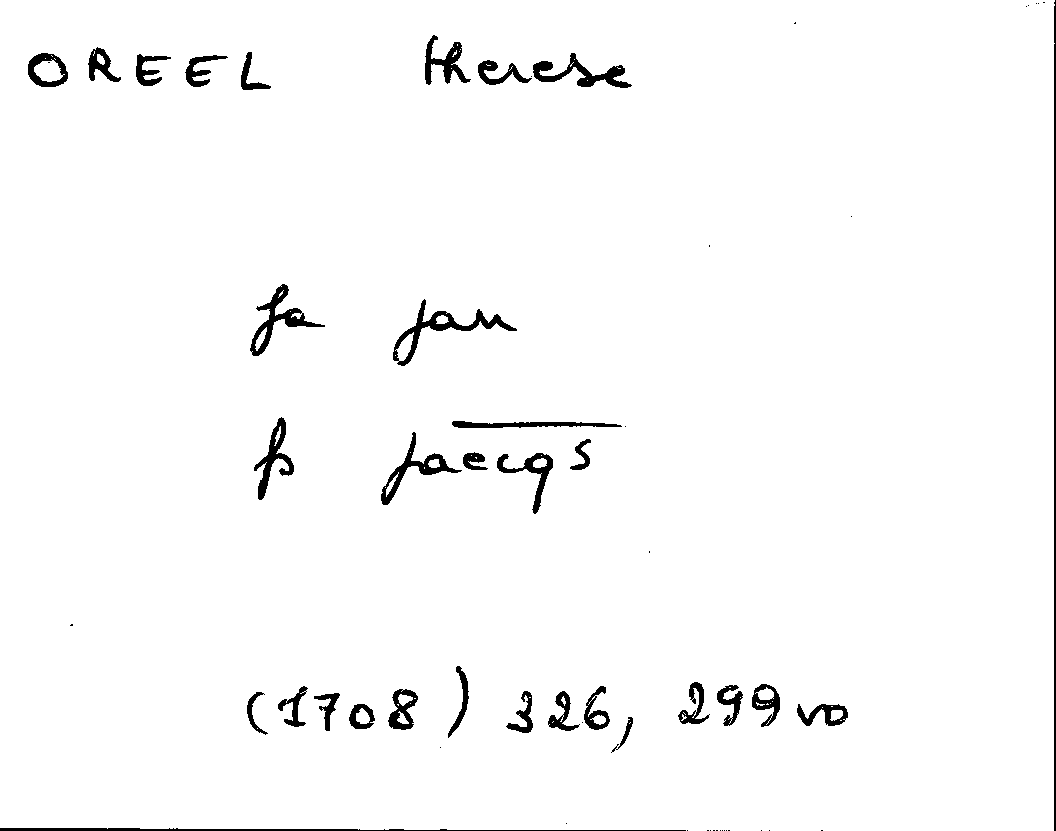 OREEL therese
fa jan
fs jaecqs
(1708) 326, 299 vo